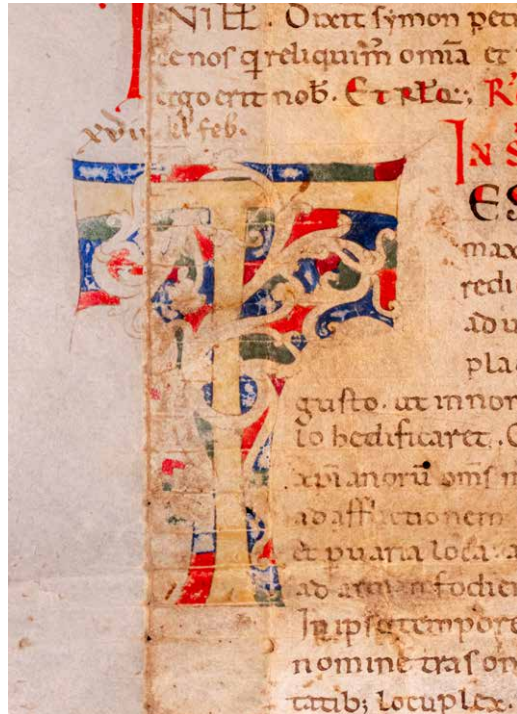 NILL. Dixit symon petr
ce nos q reliquim̄ omīa et
ergo erit nob̄. Et rłq:; R
xviii kł feb.
IN S
T ES
max
redi
ad u
pla
gusto. ut in nor
lo hedificaret. C
xp̄ianorū om̄s m
ad afflictionem
et p uaria loca. a
ad arenam fodien
In ipso tempore
nomine trason
tatib; locuplex.